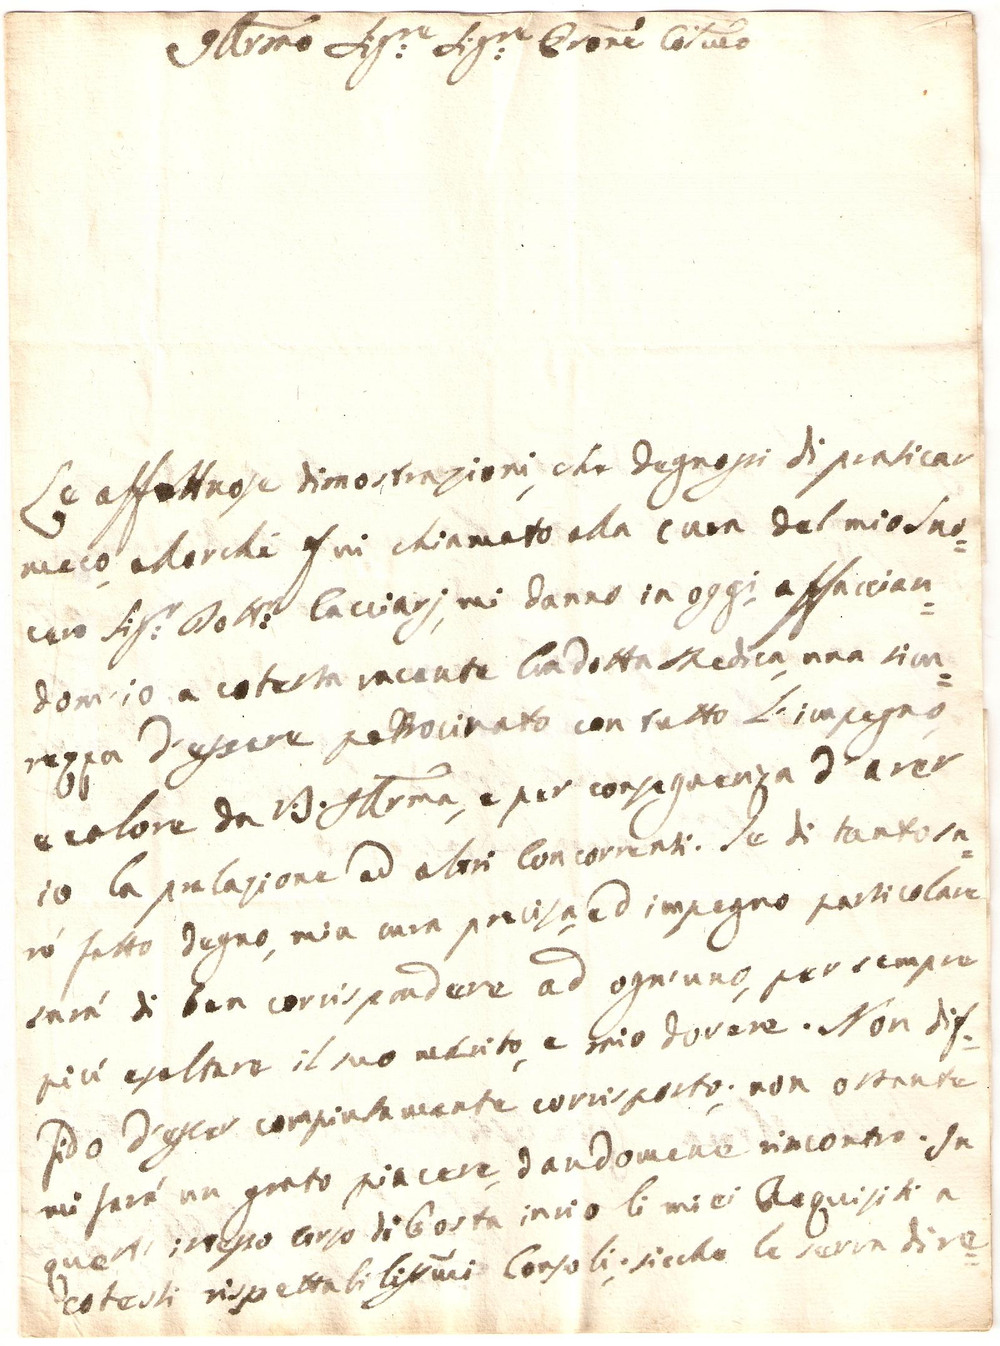 Illrmo Sigre Sigre Prone Colmo
Le affettuose dimostrazioni, che degnossi di praticar
meco, allorché fui chiamato alla cura del mio Suo=
cero Sigr Dottr Cacciarj, mi danno in oggi, affaccian=
domi io a cotesta vacente Condotta Medica, una sicu=
rezza d'essere pattrocinato con tutto L'impegno,
e calore da V.S. Illrma, e per conseguenza d'aver
io la prelazione ad altri Concorrenti. Se di tanto sa=
rò fatto degno, mia cura precisa, ed impegno particolare
sarà di ben corrispondere ad ogni uno, per sempre
più esaltare il suo merito, e mio dovere. Non dif=
fido d'esser compiutamente corrisposto; non ostante
mi farà un grato piacere, dandomene rincontro. In
questo istesso corso di Posta invio li miei Requisiti a
cotesti rispettabilissmi Consoli; sicche le serva di re=